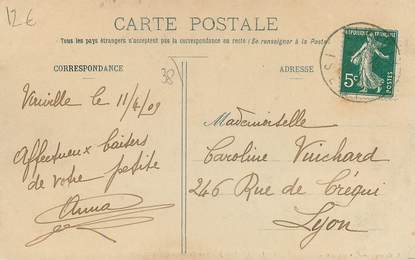 12€
CARTE POSTALE
Tous les pays étrangers n'acceptent pas la correspondance au recto (Se renseigner à la Poste).
CORRESPONDANCE
38
ADRESSE
RÉPUBLIQUE FRANÇAISE
5c
POSTES
le 11/4/09
Affectueux baisers
de votre petite
Anna
Mademoiselle
Caroline Vuichard
246 Rue de Créqui
Lyon